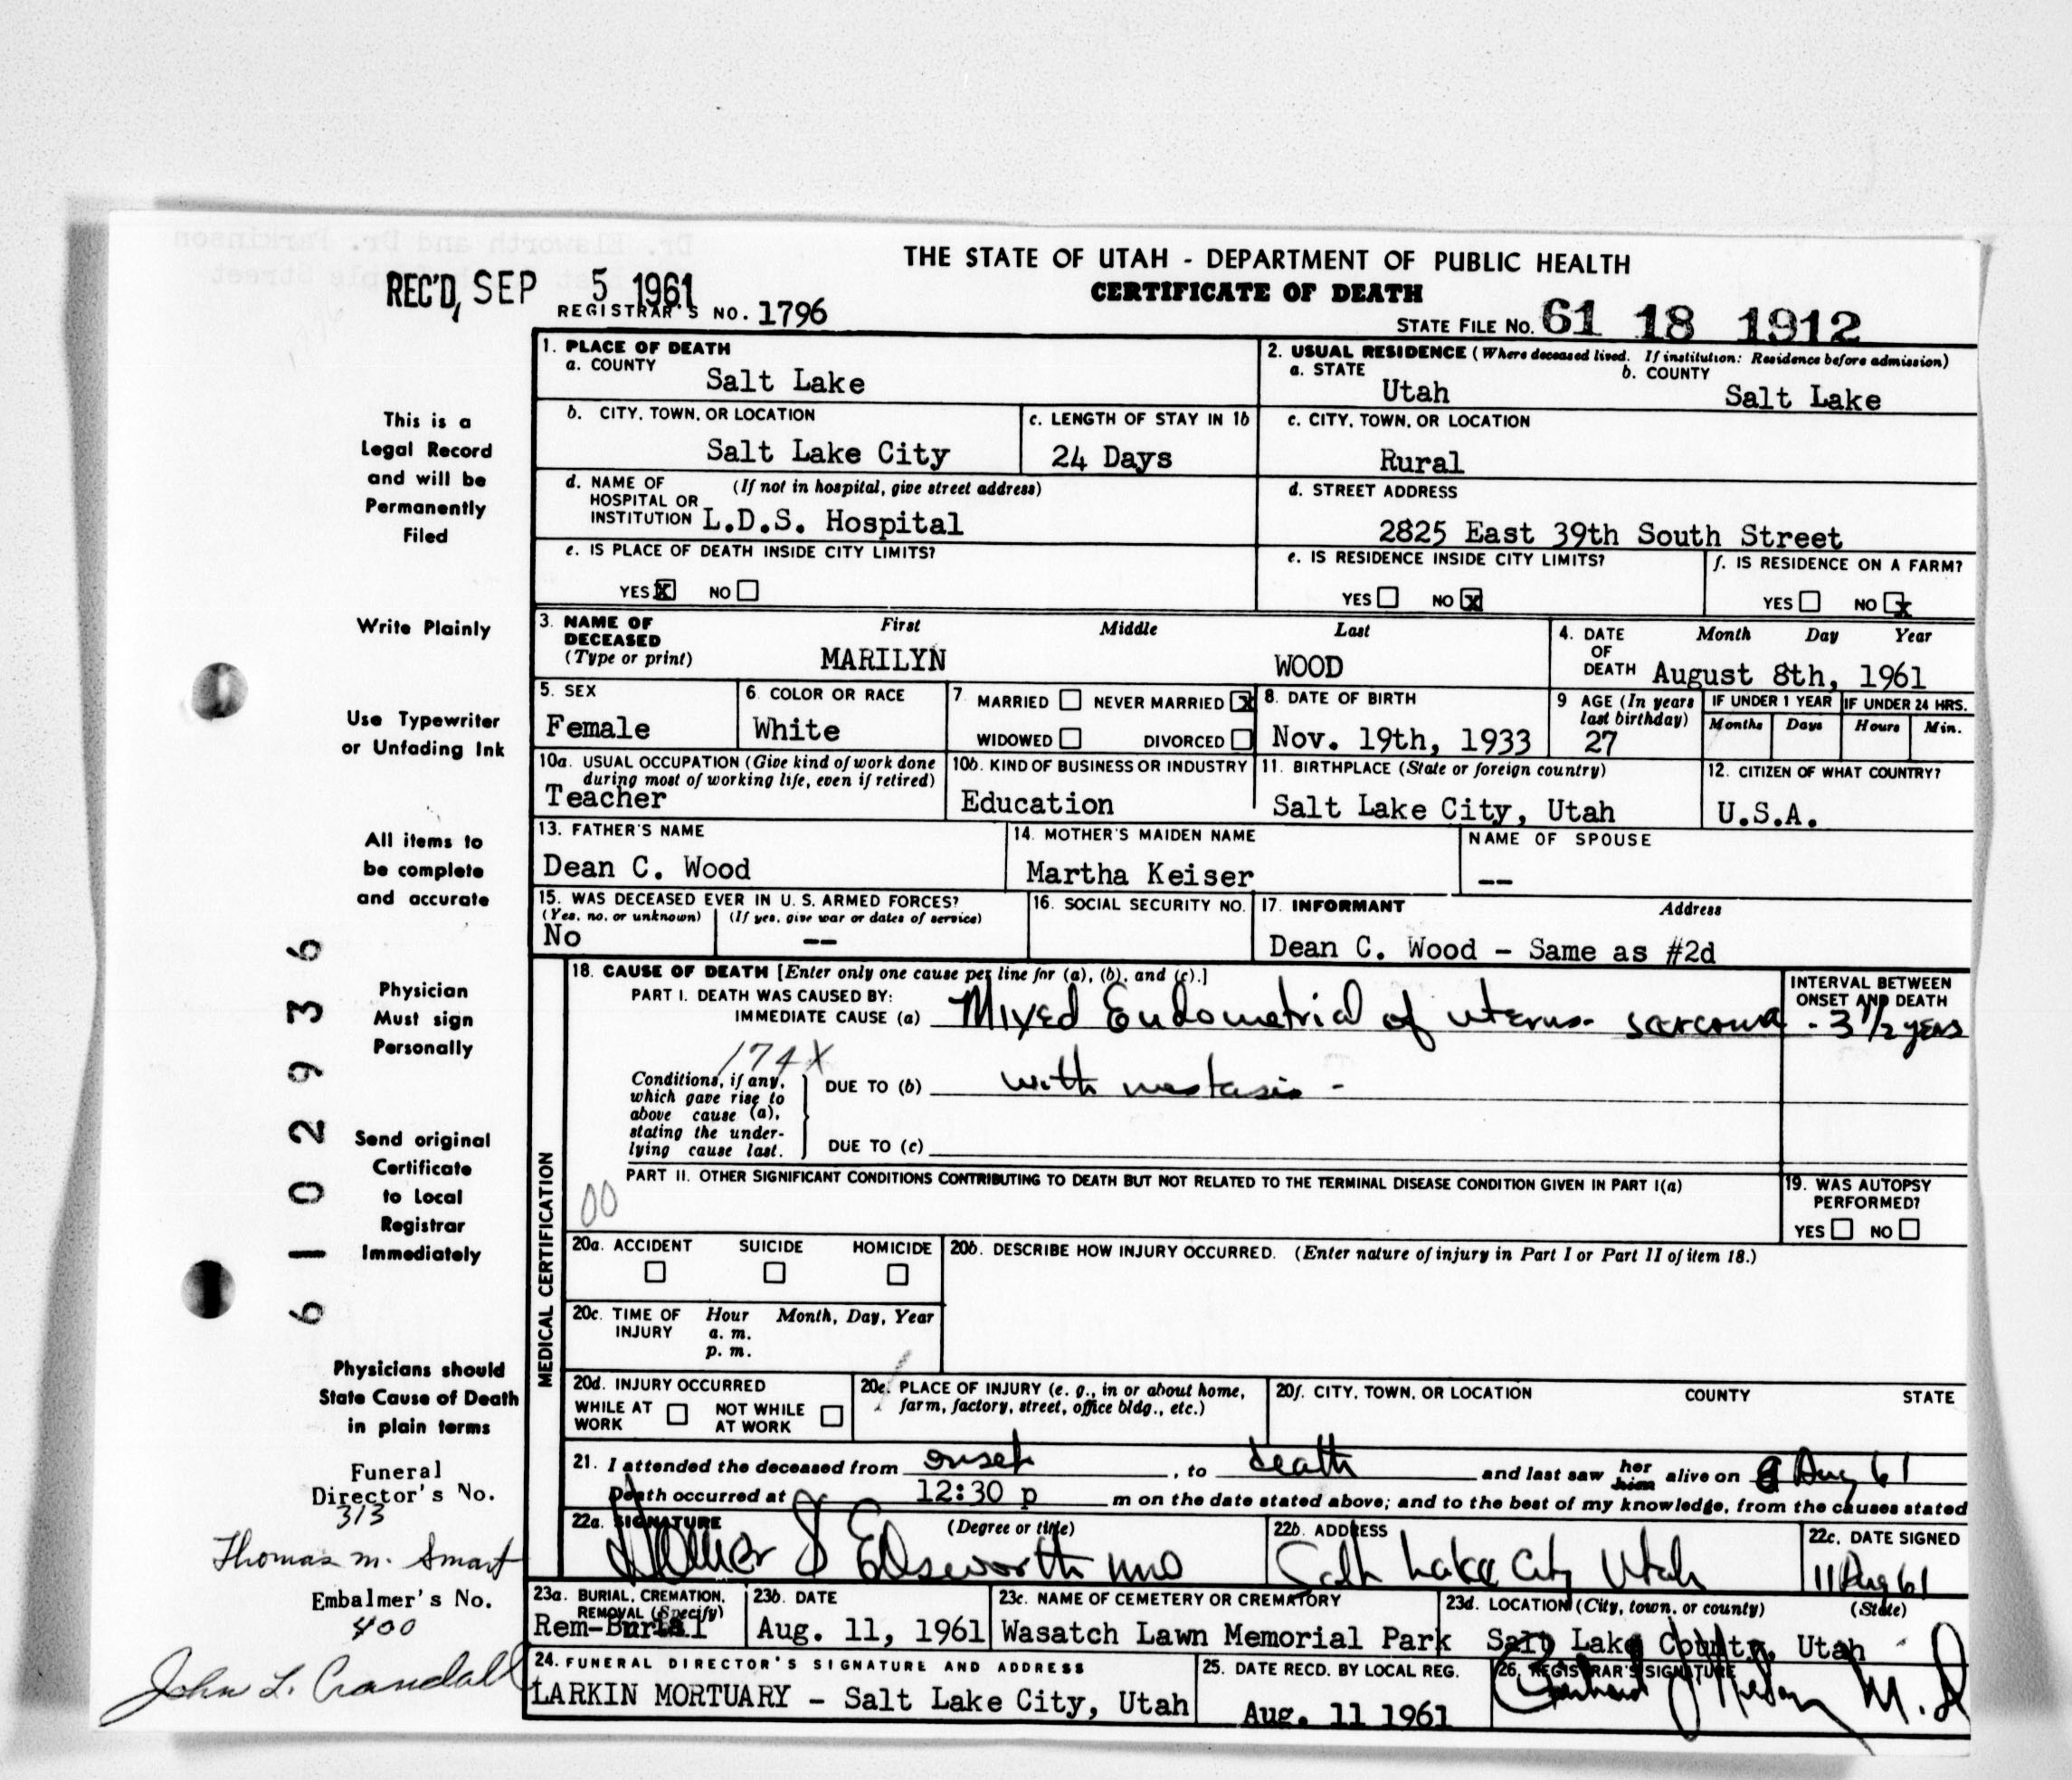 THE STATE OF UTAH - DEPARTMENT OF PUBLIC HEALTH
CERTIFICATE OF DEATH
REC'D, SEP 5 1961
REGISTRAR'S NO. 1796
STATE FILE NO. 61 18 1912
This is a
Legal Record
and will be
Permanently
Filed
Write Plainly
Use Typewriter
or Unfading Ink
All items to
be complete
and accurate
Physician
Must sign
Personally
Send original
Certificate
to Local
Registrar
Immediately
Physicians should
State Cause of Death
in plain terms
Funeral
Director's No.
313
Thomas M. Smart
Embalmer's No.
400
John L. Crandall
6102936
1. PLACE OF DEATH
a. COUNTY
Salt Lake
2. USUAL RESIDENCE (Where deceased lived. If institution: Residence before admission)
a. STATE b. COUNTY
Utah Salt Lake
b. CITY, TOWN, OR LOCATION
Salt Lake City
c. LENGTH OF STAY IN 1b
24 Days
c. CITY, TOWN, OR LOCATION
Rural
d. NAME OF (If not in hospital, give street address)
HOSPITAL OR
INSTITUTION L.D.S. Hospital
d. STREET ADDRESS
2825 East 39th South Street
e. IS PLACE OF DEATH INSIDE CITY LIMITS?
YES X NO
e. IS RESIDENCE INSIDE CITY LIMITS?
YES NO X
f. IS RESIDENCE ON A FARM?
YES NO X
3. NAME OF First Middle Last
DECEASED
(Type or print) MARILYN WOOD
4. DATE Month Day Year
OF
DEATH August 8th, 1961
5. SEX
Female
6. COLOR OR RACE
White
7. MARRIED NEVER MARRIED X
WIDOWED DIVORCED
8. DATE OF BIRTH
Nov. 19th, 1933
9 AGE (In years
last birthday)
27
IF UNDER 1 YEAR
Months Days
IF UNDER 24 HRS.
Hours Min.
10a. USUAL OCCUPATION (Give kind of work done
during most of working life, even if retired)
Teacher
10b. KIND OF BUSINESS OR INDUSTRY
Education
11. BIRTHPLACE (State or foreign country)
Salt Lake City, Utah
12. CITIZEN OF WHAT COUNTRY?
U.S.A.
13. FATHER'S NAME
Dean C. Wood
14. MOTHER'S MAIDEN NAME
Martha Keiser
NAME OF SPOUSE
--
15. WAS DECEASED EVER IN U. S. ARMED FORCES?
(Yes, no, or unknown) (If yes, give war or dates of service)
No --
16. SOCIAL SECURITY NO.
17. INFORMANT Address
Dean C. Wood - Same as #2d
MEDICAL CERTIFICATION
18. CAUSE OF DEATH [Enter only one cause per line for (a), (b), and (c).]
PART I. DEATH WAS CAUSED BY:
IMMEDIATE CAUSE (a) Mixed Endometrial of uterus - sarcoma
INTERVAL BETWEEN
ONSET AND DEATH
- 3 1/2 years
174X
Conditions, if any,
which gave rise to
above cause (a),
stating the under-
lying cause last.
DUE TO (b) with mestasis -
DUE TO (c)
PART II. OTHER SIGNIFICANT CONDITIONS CONTRIBUTING TO DEATH BUT NOT RELATED TO THE TERMINAL DISEASE CONDITION GIVEN IN PART I(a)
00
19. WAS AUTOPSY
PERFORMED?
YES NO
20a. ACCIDENT SUICIDE HOMICIDE
20b. DESCRIBE HOW INJURY OCCURRED. (Enter nature of injury in Part I or Part II of item 18.)
20c. TIME OF Hour Month, Day, Year
INJURY a. m.
p. m.
20d. INJURY OCCURRED
WHILE AT WORK NOT WHILE AT WORK
20e. PLACE OF INJURY (e. g., in or about home,
farm, factory, street, office bldg., etc.)
20f. CITY, TOWN, OR LOCATION COUNTY STATE
21. I attended the deceased from onset, to death and last saw her him alive on 8 Aug 61
Death occurred at 12:30 p m on the date stated above; and to the best of my knowledge, from the causes stated
22a. SIGNATURE (Degree or title)
Ellsworth MD
22b. ADDRESS
Salt Lake City Utah
22c. DATE SIGNED
11 Aug 61
23a. BURIAL, CREMATION,
REMOVAL (Specify)
Rem-Burial
23b. DATE
Aug. 11, 1961
23c. NAME OF CEMETERY OR CREMATORY
Wasatch Lawn Memorial Park
23d. LOCATION (City, town, or county) (State)
Salt Lake County, Utah
24. FUNERAL DIRECTOR'S SIGNATURE AND ADDRESS
LARKIN MORTUARY - Salt Lake City, Utah
25. DATE RECD. BY LOCAL REG.
Aug. 11 1961
26. REGISTRAR'S SIGNATURE
M.D